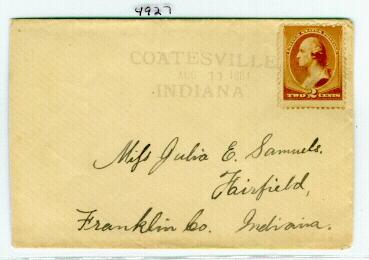 4927
COATESVILLE
AUG 11 1884
INDIANA
UNITED STATES POSTAGE
TWO 2 CENTS
Miss Julia E. Samuels.
Fairfield,
Franklin Co. Indiana.